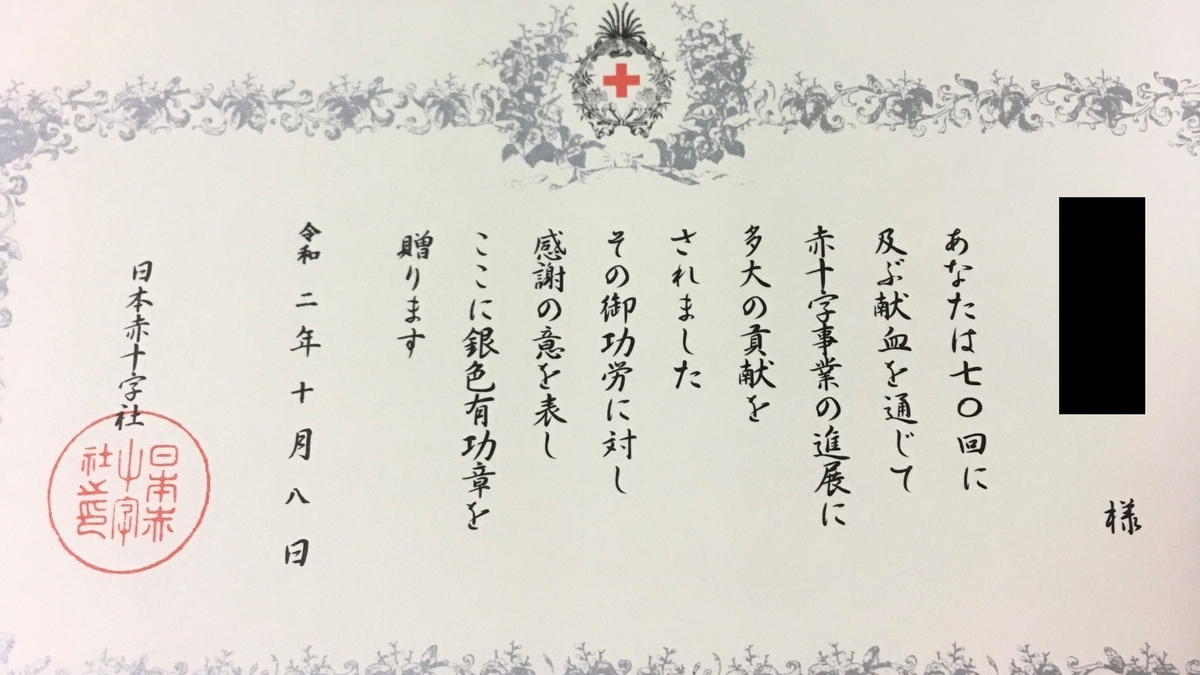 様
あなたは七〇回に
及ぶ献血を通じて
赤十字事業の進展に
多大の貢献を
されました
その御功労に対し
感謝の意を表し
ここに銀色有功章を
贈ります
令和二年十月八日
日本赤十字社
日本赤
十字
社之印